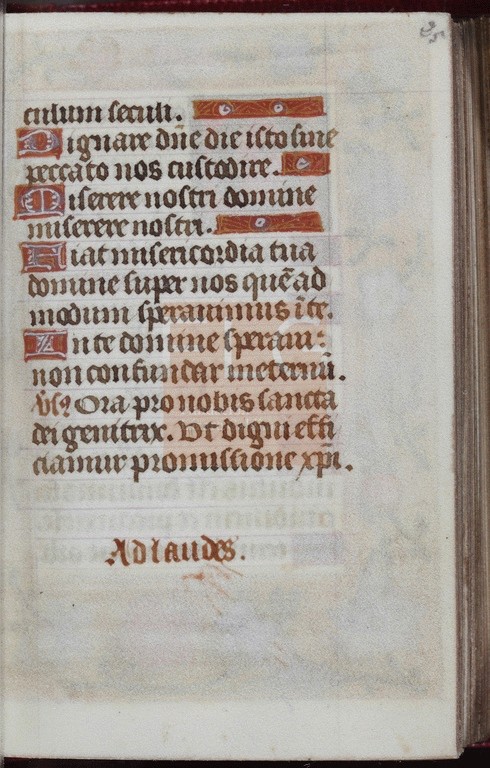 culum seculi.
Dignare dñe die isto sine
peccato nos custodire.
Miserere nostri domine
miserere nostri.
Fiat misericordia tua
domine super nos quẽad
modum sperauimus ĩ te.
In te domine speraui:
non confundar in eternũ.
Vs Ora pro nobis sancta
dei genitrix. Vt digni effi
ciamur promissione xp̃i.
Ad laudes.